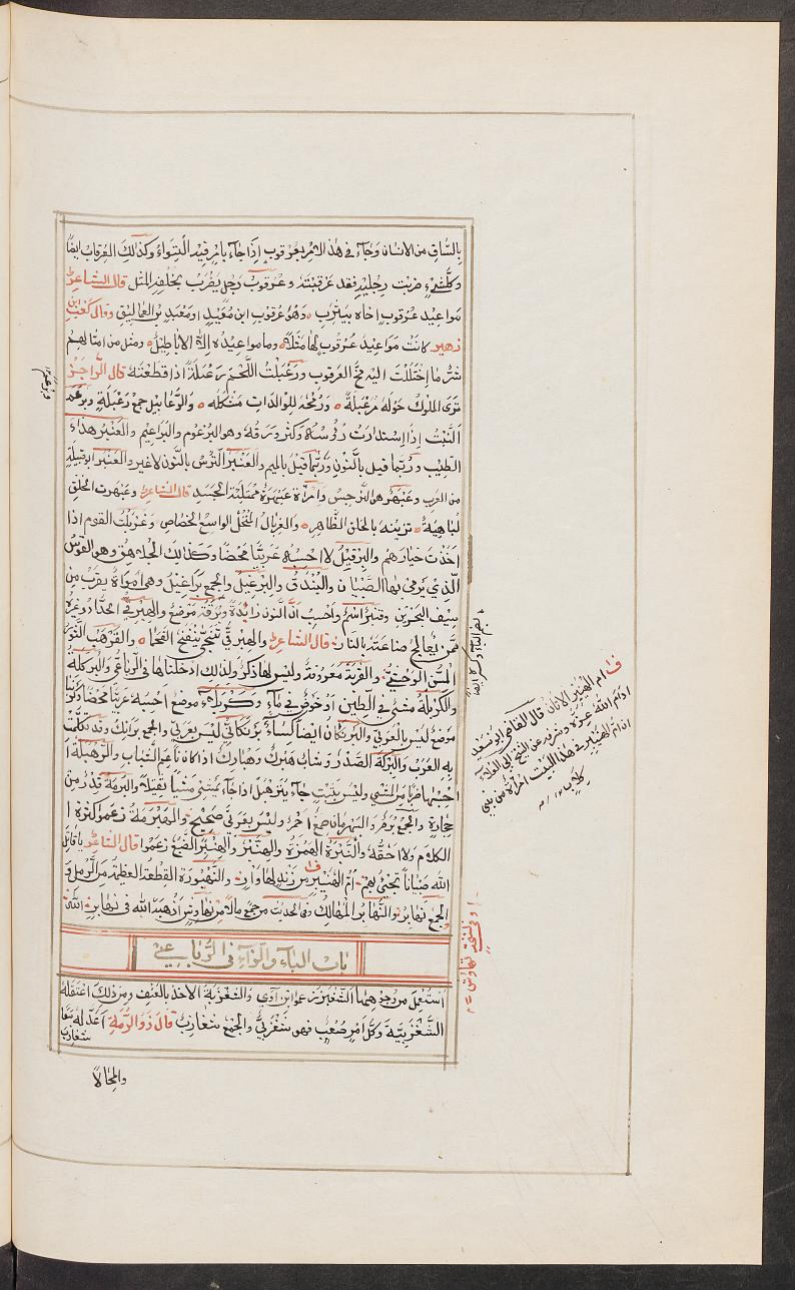 بالسّاق من الانسان وجآء في هذا الامر بعرقوب إذا جآء بامر فيه الْتِواءُ وكذلك العرقاب ايضًا
وكلّ شيْءٍ ضربت رجليه فقد عَرْقَبْتَهُ وعرقوبٌ رجل يضْرب بخلفه المثل قال الشاعر
مواعيد عُرْقوبٍ اخاه بيثرب وهو عرقوب ابن مُعَيدٍ او معبد من العماليق وقال كعب بن
زهير كانت مَوَاعيد عُرْقوبٍ لها مَثَلًا وما مواعيدُه إلّا الاباطيلُ ومثل من امثالهم
شرُّ ما اختللت اليه مخّ العرقوب ورَعْبَلْتُ اللّحْم رَعْبَلَةً اذا قطعته قال الراجز
ترى الملوك حوله مرعبَلَهْ ورمحه للوالدات مثكله والرّعابيل جمع رعبلة وبرعم
النّبْتُ إذا استدارت رؤسه وكثر ورقه وهو البُرْعوم والبراعيم والعنبر هذا
الطّيب وربّما قيل بالنّون وربّما قيل بالميم والعَنْبَر التُّرْس بالنّون لاغير والعنبر ابو قبيلة
من العرب وعَبْهر هو النّرجس وامرأة عَبْهَرَةٌ ممتلئة الجسد قال الشاعر وعبهرت الخلق
لُباخيّةٌ تزينه بالخلق الظّاهر والغربال المُنْخُل الواسع الخصاص وغربلت القوم اذا
اخذت خيارهم والبرقيل لا احسبه عَربيًّا مَحْضًا وكذلك الجلاهق وهو القوس
الّذي يرمي بها الصّبيان والبُنْدق والبَرْغيل والجمع بَرَاغيل وهي أمواه يقرب من
سِيف البحْر وقنبر اسْمٌ واحسب انّ النّون زايدةٌ وبُرْقة مَوضع والهبرقيّ الحدّاد وغيره
ممّن يعالج صناعته بالنار قال الشاعر والهبرقي تنحّى ينفخ الفحما والقَرْهَب الثّور
المُسِنّ الوحشيّ والقربة معروفة وليس لها ذكر ولذلك ادخلناها في الرباعي والبَرْكلة
والكربلة مشي في الطّين او خَوْض في مآءٍ وكربلاء موضع احسبه عربيّا محضا
موضع ليس بالعربي والبرنكان ايضا كساءٌ برنكانيّ ليس بعربيّ والجمع برانك وقد تكلّمت
به العَرَب والبَرْكة الصّدْر وشابٌ هَبْرك وهُبارك اذا كان ناعم الشّباب والرّهبلة
احسبها ضربا من المشي وليس بثبت جآء يترهبل اذا جآء يمشي مشيًا ثقيلًا والبرمة قدر من
حجارةٍ والجمع برم والبَهْرمان صبغ احمر وليس بعربيّ صحيح والهبرمة زعموا كثرة
الكلام ولا احقّه والنّبْرَة الهمْزة والهنبر والهِنّبر الضبع زعموا قال الشاعر يا قاتل
الله صبياناً تجئ بهم أُمّ الهُنَيْبِر من زندٍ لها وارِ والنّهبورة القطعة العظيمة من الرّمل و
الجمع نهابر والنّهابر المهالك وفي الحديث من جمع مالا من نهاوش أذهبه الله في نهابر
باب الباء والزاء في الرباعي
استعمل من وجوههما الشغبزة عن ابن آوى والشغزبة الاخذ بالعنف ومن ذلك اعتقله
الشّغْزبيّة وكلّ امر صُعْب فهو شَغْزَبيٌّ والجمع شغازب قال ذو الرمّة أعدّ له
شغازب
والمحالا
ف ام الهنيبر الاتان قال القاضي ابو سعيد